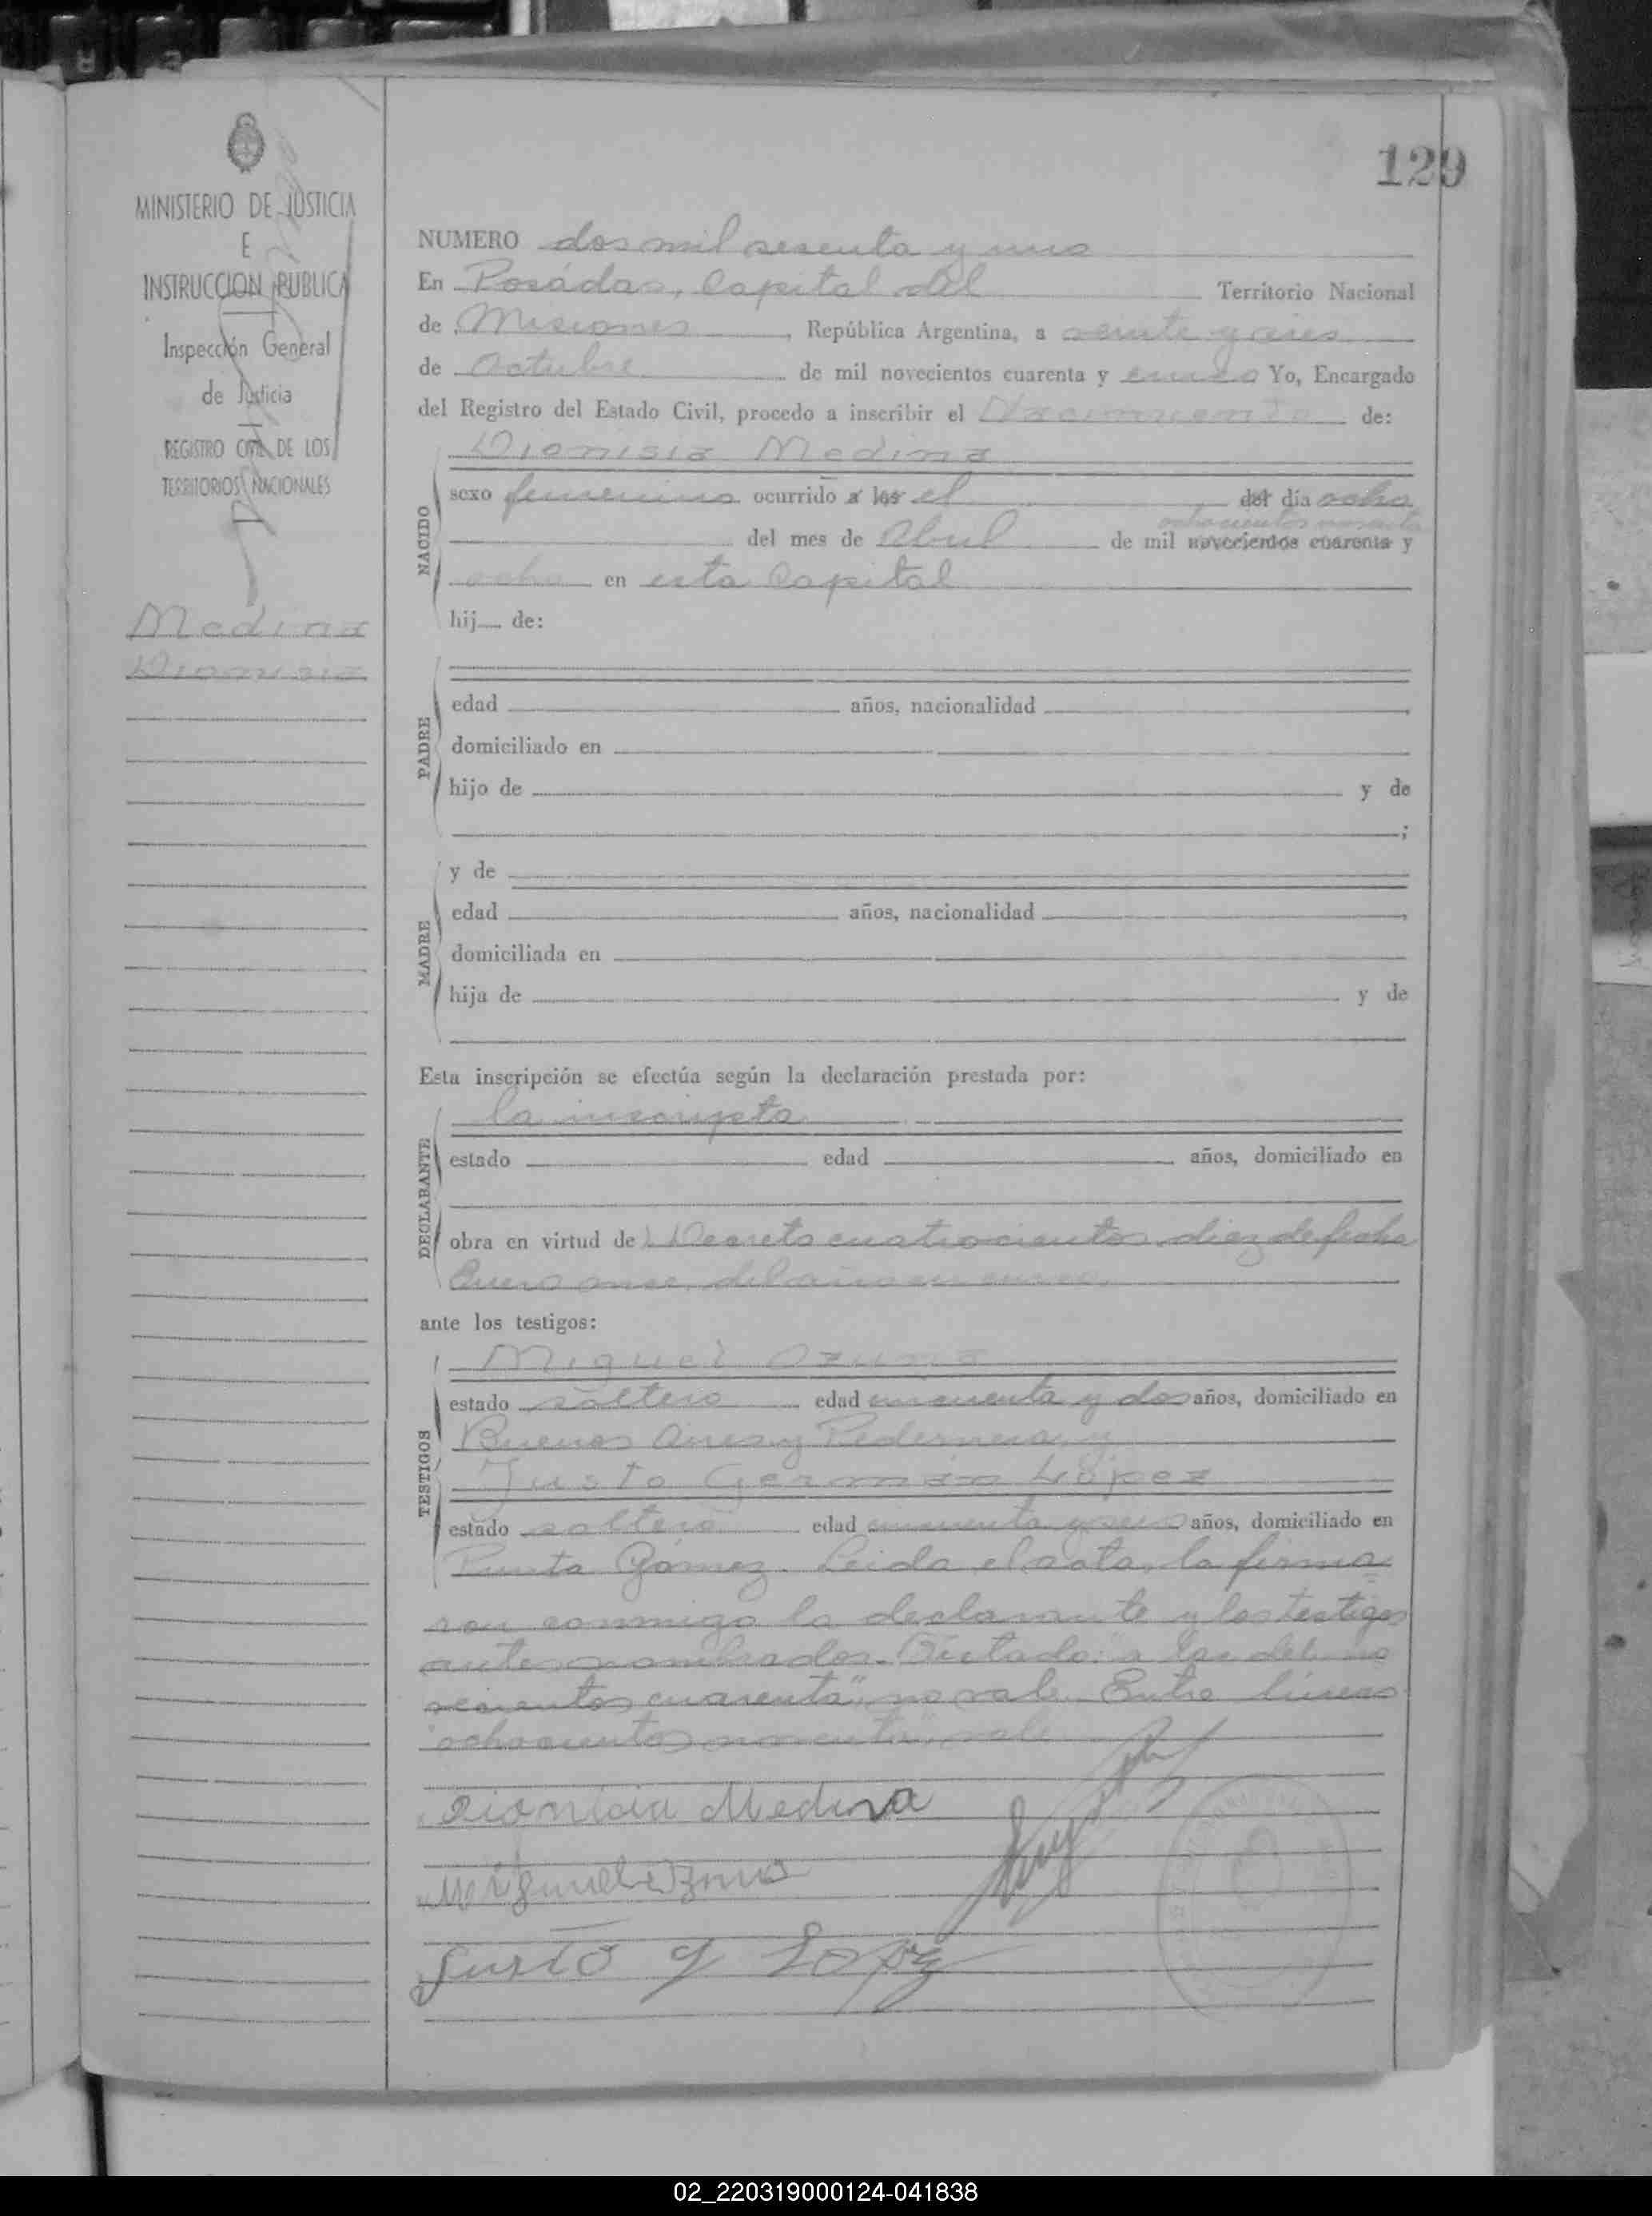 129
MINISTERIO DE JUSTICIA
E
INSTRUCCION PUBLICA
Inspección General
de Justicia
REGISTRO CIVIL DE LOS
TERRITORIOS NACIONALES
Medina
Dionisia
NUMERO dos mil sesenta y uno
En Posádas, Capital del Territorio Nacional
de Misiones, República Argentina, a veinte y seis
de Octubre de mil novecientos cuarenta y cinco Yo, Encargado
del Registro del Estado Civil, procedo a inscribir el Nacimiento de:
Dionisia Medina
NACIDO
sexo femenino ocurrido a las el del día ocho
ochocientos noventa
del mes de Abril de mil novecientos cuarenta y
ocho en esta Capital
hij de:
PADRE
edad años, nacionalidad
domiciliado en
hijo de y de
;
MADRE
y de
edad años, nacionalidad
domiciliada en
hija de y de
Esta inscripción se efectúa según la declaración prestada por:
DECLARANTE
la inscripta
estado edad años, domiciliado en
obra en virtud de Decreto cuatrocientos diez de fecha
Enero once del año en curso
ante los testigos:
TESTIGOS
Miguel Ozuna
estado soltero edad cincuenta y dos años, domiciliado en
Buenos Aires y Pedernera y
Justo Germán López
estado soltero edad y seis años, domiciliado en
Punta Gómez. Leida el acta, la firma=
ron conmigo la declarante y los testigos
antes nombrados. Testado: "a las del no
vecientos cuarenta" no vale. Entre lineas
"ochocientos noventa" vale
Dionicia Medina
Miguel Ozuna
Justo G Lopez
02_220319000124-041838